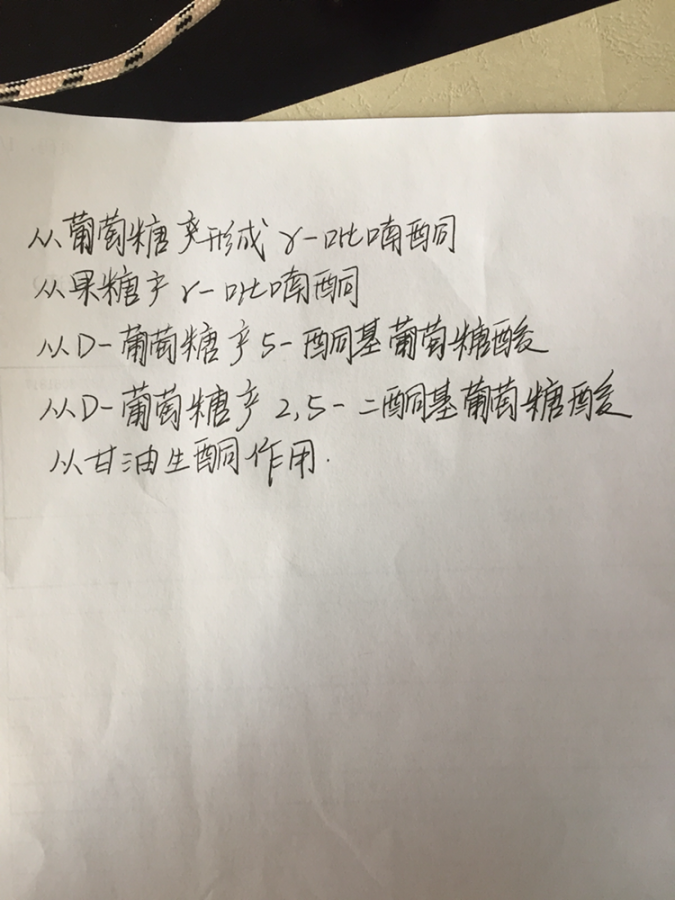 从葡萄糖产形成γ-吡喃酮
从果糖产γ-吡喃酮
从D-葡萄糖产5-酮基葡萄糖酸
从D-葡萄糖产2,5-二酮基葡萄糖酸
从甘油生酮作用.